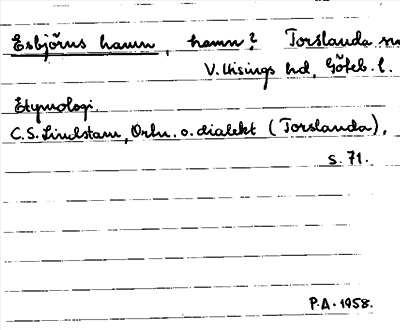 Esbjörns hamn, hamn? Torslanda sn
V. Hisings hd, Göteb. l.
Etymologi.
C.S. Lindstam, Ortn. o. dialekt (Torslanda),
s. 71.
P.A. 1958.